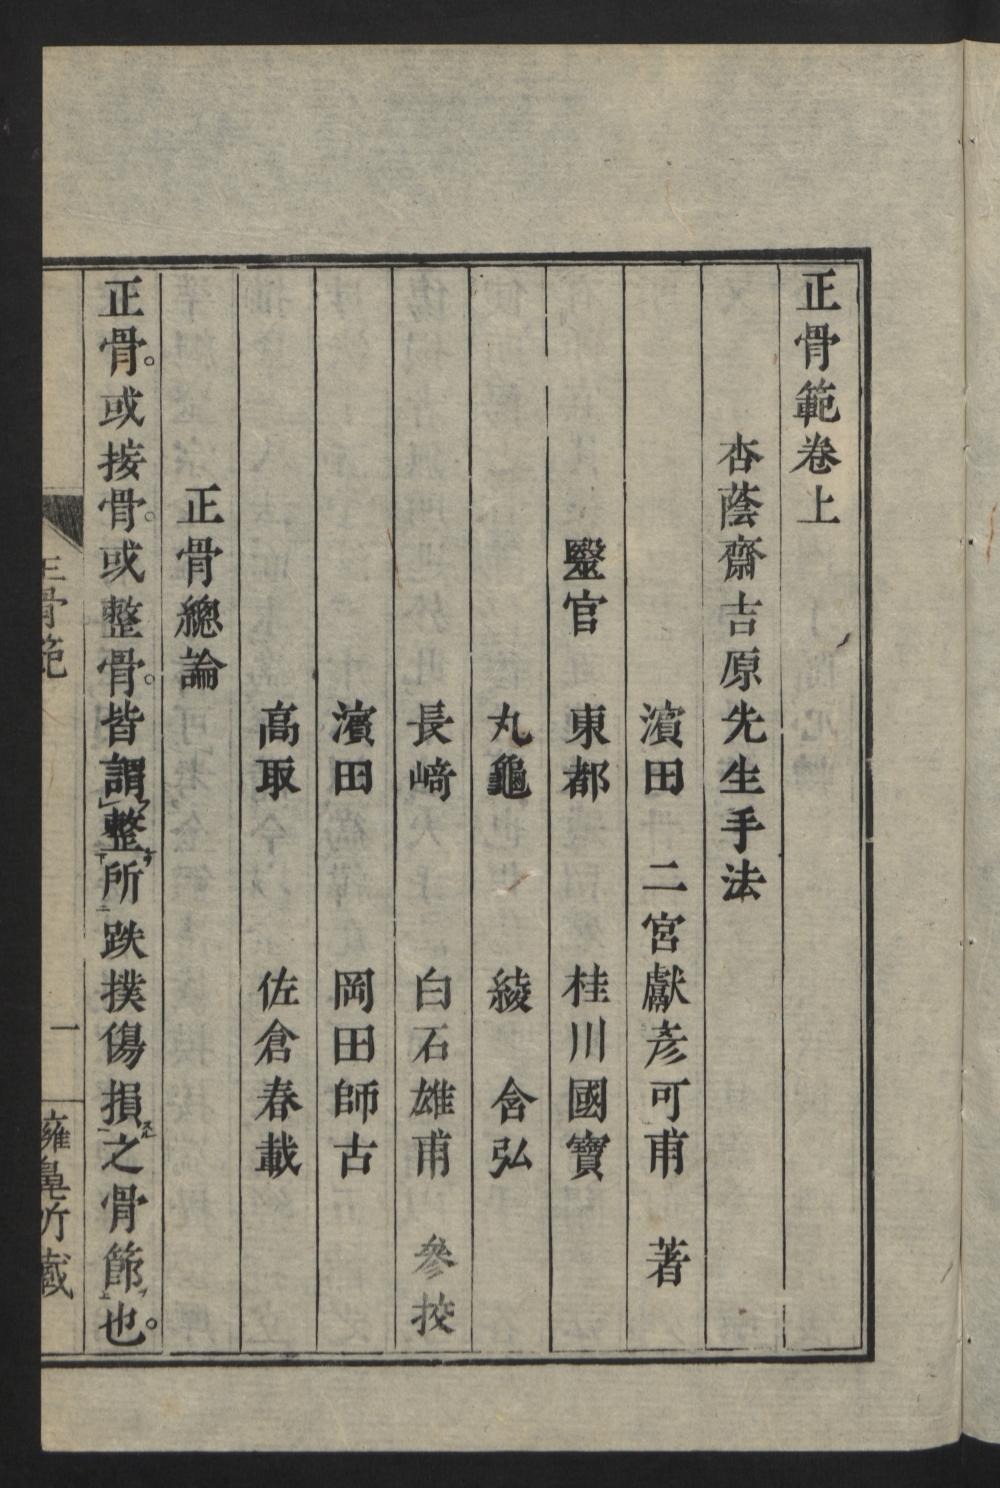 正骨範卷上
杏蔭齋吉原先生手法
濱田 二宮獻彥可甫 著
毉官 東都 桂川國寶
丸龜 綾 含弘
長﨑 白石雄甫 參挍
濱田 岡田師古
高取 佐倉春載
正骨總論
正骨。或按骨。或整骨。皆謂整所跌撲傷損之骨節也。
正骨範 一 雝皐所藏